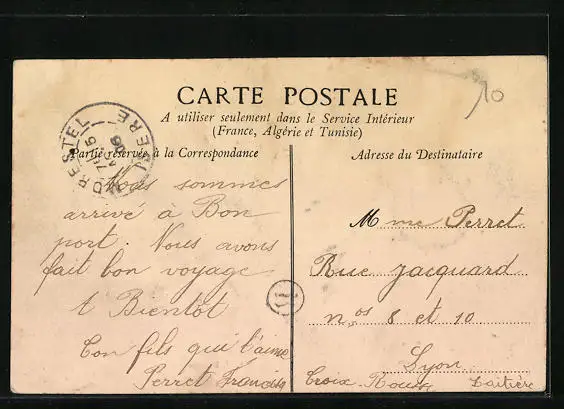 10
CARTE POSTALE
A utiliser seulement dans le Service Intérieur
(France, Algérie et Tunisie)
DRESTEL
ISERE
Partie réservée à la Correspondance
Adresse du Destinataire
Nous sommes
arrivé à Bon
port. Nous avons
fait bon voyage
A Bientôt
Ton fils qui t'aime
Perret Francis
Mme Perret
Rue Jacquard
nos 8 et 10
Lyon
Croix Rousse Laitière